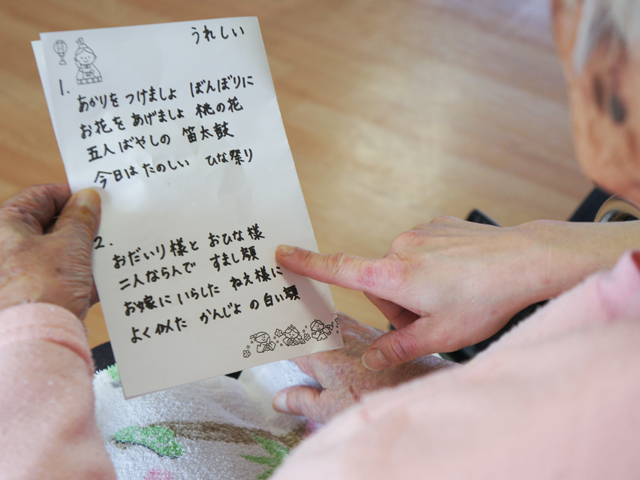 うれしい
1.
あかりを つけましょ ぼんぼりに
お花を あげましょ 桃の花
五人ばやしの 笛太鼓
今日は たのしい ひな祭り
2.
おだいり様と おひな様
二人ならんで すまし顔
お嫁に いらした ねえ様に
よく似た かんじょ の白い顔